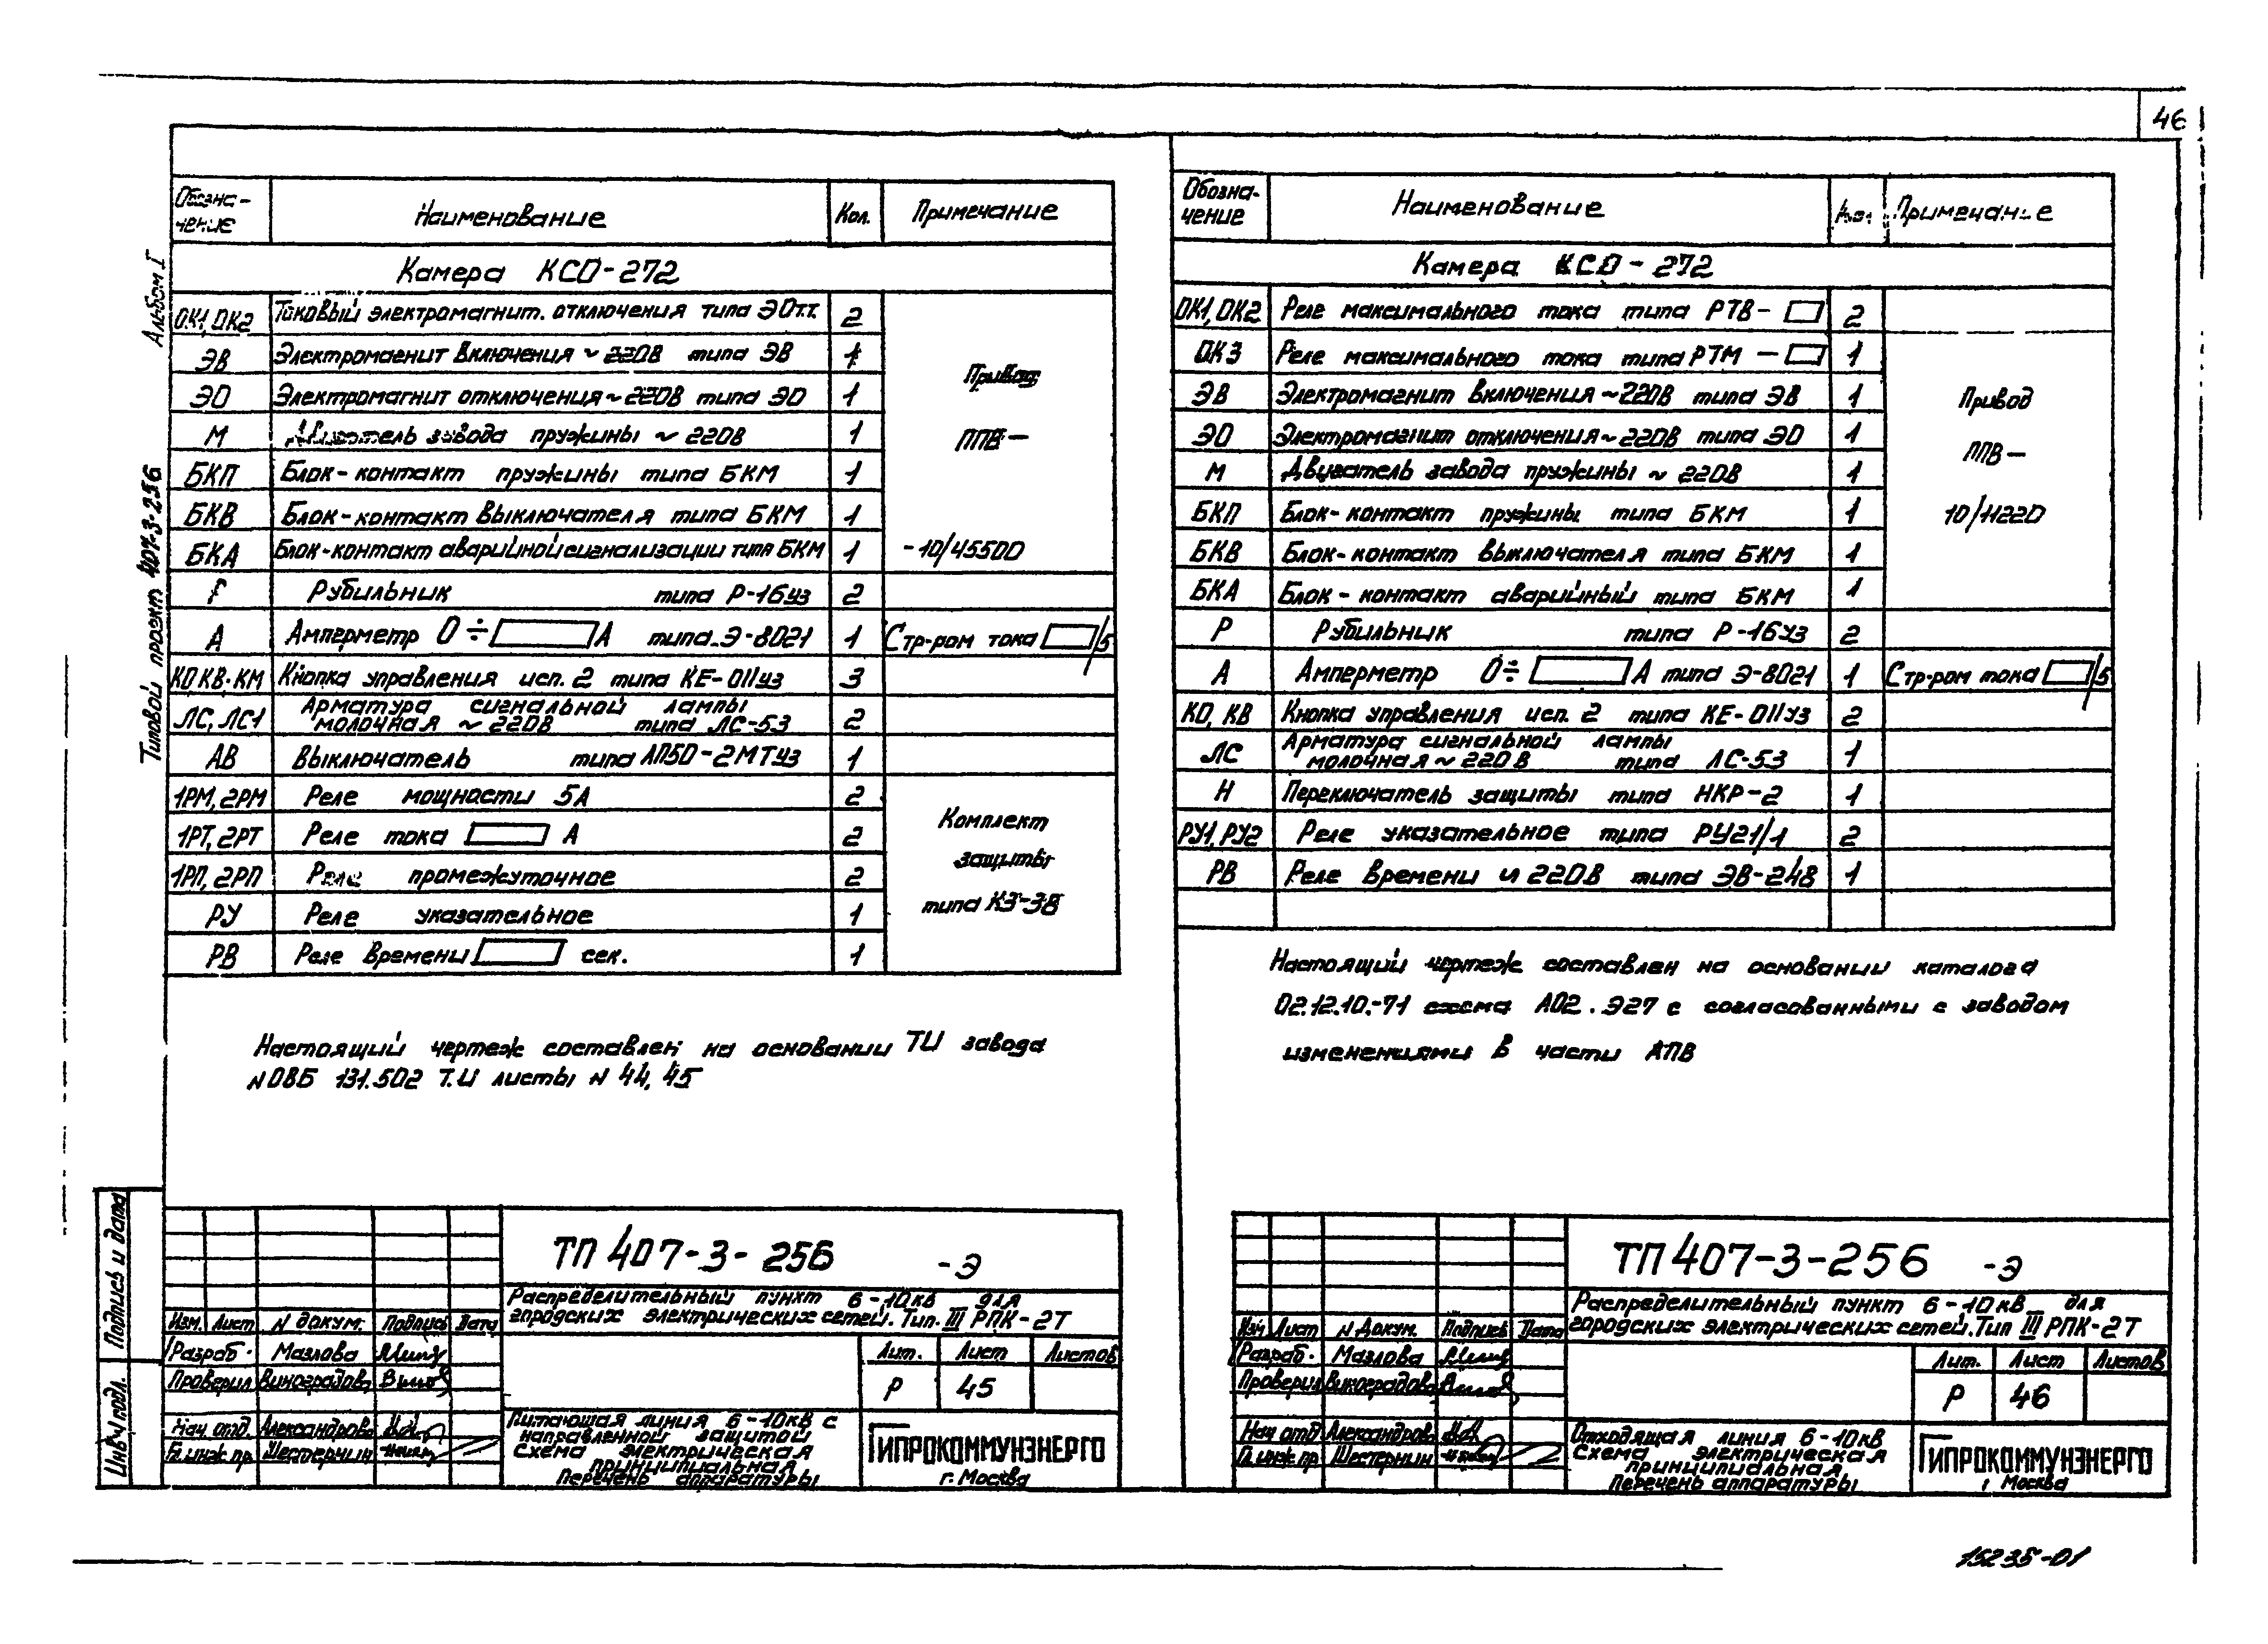 46
Альбом I
Типовой проект 407-3-256
Обозначение Наименование Кол. Примечание
Камера КСО-272
ОК1, ОК2 Токовый электромагнит. отключения типа ЭОтт. 2
ЭВ Электромагнит включения ~ 220В типа ЭВ 1
ЭО Электромагнит отключения ~ 220В типа ЭО 1
Привод
М Двигатель завода пружины ~ 220В 1
ППВ-
БКП Блок-контакт пружины типа БКМ 1
БКВ Блок-контакт выключателя типа БКМ 1
БКА Блок-контакт аварийной сигнализации типа БКМ 1 -10/45500
Рубильник типа Р-16уз 2
А Амперметр 0 ÷ А типа Э-8021 1 С тр-ром тока /5
КО, КВ, КМ Кнопка управления исп. 2 типа КЕ-011уз 3
ЛС, ЛС1 Арматура сигнальной лампы
молочная ~ 220В типа ЛС-53 2
АВ Выключатель типа АП50-2МТуз 1
1РМ, 2РМ Реле мощности 5А 2
1РТ, 2РТ Реле тока А 2
Комплект
защиты
1РП, 2РП Реле промежуточное 2
типа КЗ-38
РУ Реле указательное 1
РВ Реле времени сек. 1
Настоящий чертеж составлен на основании ТИ завода
N ОВБ 131.502 Т.И листы N 44, 45
Подпись и дата
Инв N подл.
ТП 407-3-256 -Э
Распределительный пункт 6-10кв для
городских электрических сетей. Тип. III РПК-2Т
Изм. Лист N докум. Подпись Дата
Разраб. Мазлова
Проверил Виноградова
Нач. отд. Александрова
Гл. инж. пр. Шестернин
Лит. Лист Листов
Р 45
Питающая линия 6-10кв с
направленной защитой
Схема электрическая
принципиальная
Перечень аппаратуры
ГИПРОКОММУНЭНЕРГО
г. Москва
Обозна-
чение Наименование Кол. Примечание
Камера КСО-272
ОК1, ОК2 Реле максимального тока типа РТВ- 2
ОК3 Реле максимального тока типа РТМ - 1
ЭВ Электромагнит включения ~220В типа ЭВ 1
Привод
ЭО Электромагнит отключения ~220В типа ЭО 1
ППВ-
М Двигатель завода пружины ~ 220В 1
БКП Блок-контакт пружины типа БКМ 1
10/11220
БКВ Блок-контакт выключателя типа БКМ 1
БКА Блок-контакт аварийный типа БКМ 1
Р Рубильник типа Р-16уз 2
А Амперметр 0÷ А типа Э-8021 1 С тр-ром тока /5
КО, КВ Кнопка управления исп. 2 типа КЕ-011уз 2
ЛС Арматура сигнальной лампы
молочная ~ 220В типа ЛС-53 1
Н Переключатель защиты типа НКР-2 1
РУ1, РУ2 Реле указательное типа РУ21/1 2
РВ Реле времени 220В типа ЭВ-248 1
Настоящий чертеж составлен на основании каталога
02.12.10.-71 схема А02.Э27 с согласованными с заводом
изменениями в части АПВ
ТП 407-3-256 -Э
Распределительный пункт 6-10кв для
городских электрических сетей. Тип III РПК-2Т
Изм Лист N докум. Подпись Дата
Разраб. Мазлова
Проверил Виноградова
Нач отд Александрова
Гл. инж пр Шестернин
Лит. Лист Листов
Р 46
Отходящая линия 6-10кв
Схема электрическая
принципиальная
Перечень аппаратуры
ГИПРОКОММУНЭНЕРГО
г Москва
15235-01